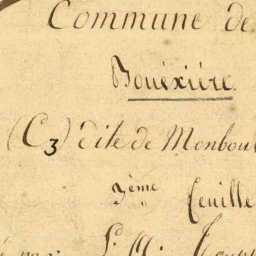 Commune de
Bouëxière.
(C3) dite de Monbou
3ème feuille